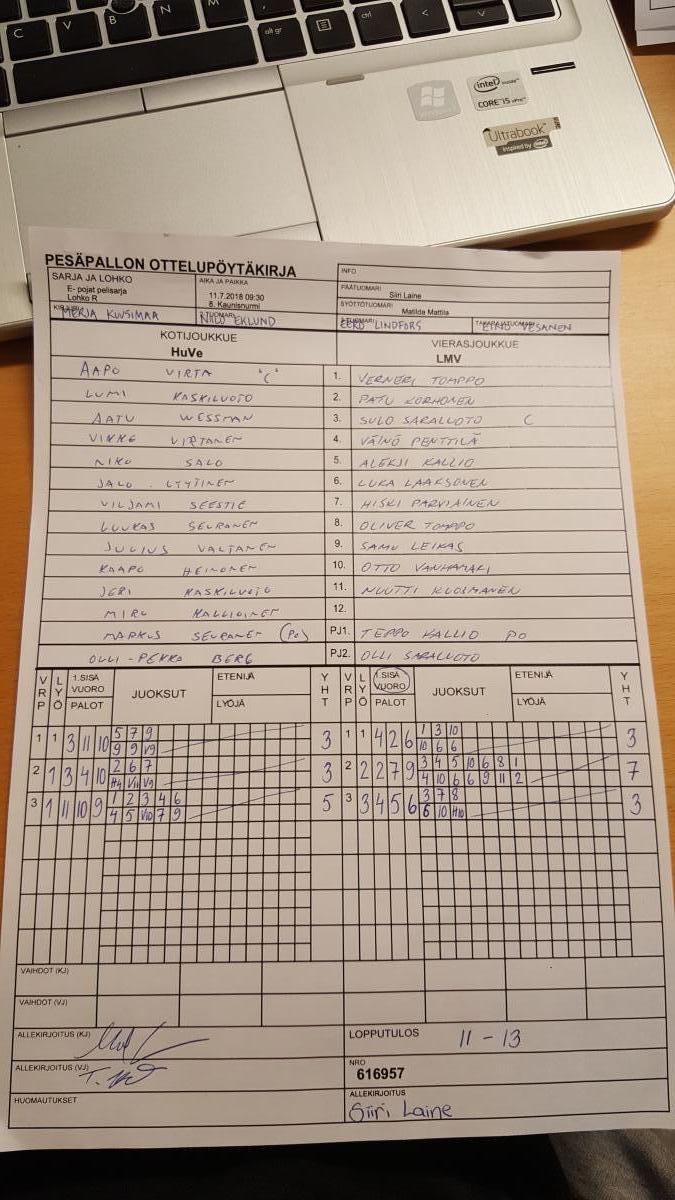 C V B N M alt gr ctrl <
intel inside™
CORE™ i5 vPro™
Ultrabook™
Inspired by intel
PESÄPALLON OTTELUPÖYTÄKIRJA
INFO
SARJA JA LOHKO
E- pojat pelisarja
Lohko R
AIKA JA PAIKKA
11.7.2018 09:30
8. Kaunisnurmi
PÄÄTUOMARI Siiri Laine
SYÖTTÖTUOMARI Matilda Mattila
MERJA KUUSIMAA NIILO EKLUND EERO LINDFORS EINO VESANEN
KOTIJOUKKUE VIERASJOUKKUE
HuVe LMV
AAPO VIRTA "C" 1. VERNERI TOMPPO
LUMI KASKILUOTO 2. PATU KORHONEN
AATU WESSMAN 3. SULO SARALUOTO C
VIKKE VIRTANEN 4. VÄINÖ PENTTILÄ
NIKO SALO 5. ALEKSI KALLIO
JALO LYYTINEN 6. LUKA LAAKSONEN
VILJAMI SEESTIE 7. HISKI PARVIAINEN
LUUKAS SEURANEN 8. OLIVER TOMPPO
JULIUS VALTANEN 9. SAMU LEIKAS
KAAPO HEINONEN 10. OTTO VANHAMÄKI
JERI KASKILUOTO 11. NUUTTI KUOSMANEN
MIRO KALLIOINEN 12.
MARKUS SEURANEN (PO) PJ1. TEPPO KALLIO PO
OLLI-PEKKA BERG PJ2. OLLI SARALUOTO
VRP LYÖ 1.SISÄ VUORO PALOT JUOKSUT ETENIJÄ LYÖJÄ YHT VRP LYÖ 1.SISÄ VUORO PALOT JUOKSUT ETENIJÄ LYÖJÄ YHT
5 7 9 1 3 10
1 1 3 11 10 3 1 1 4 2 6 3
9 9 V9 10 6 6
2 6 7 3 4 5 10 6 8 1
2 1 3 4 10 3 2 2 2 7 9 7
H4 V11 V9 4 10 6 6 9 11 2
1 2 3 4 6 3 7 8
3 1 11 10 9 5 3 3 4 5 6 3
4 5 V10 7 9 6 10 H10
VAIHDOT (KJ)
VAIHDOT (VJ)
ALLEKIRJOITUS (KJ)
LOPPUTULOS 11 - 13
ALLEKIRJOITUS (VJ)
NRO
616957
HUOMAUTUKSET
ALLEKIRJOITUS
Siiri Laine